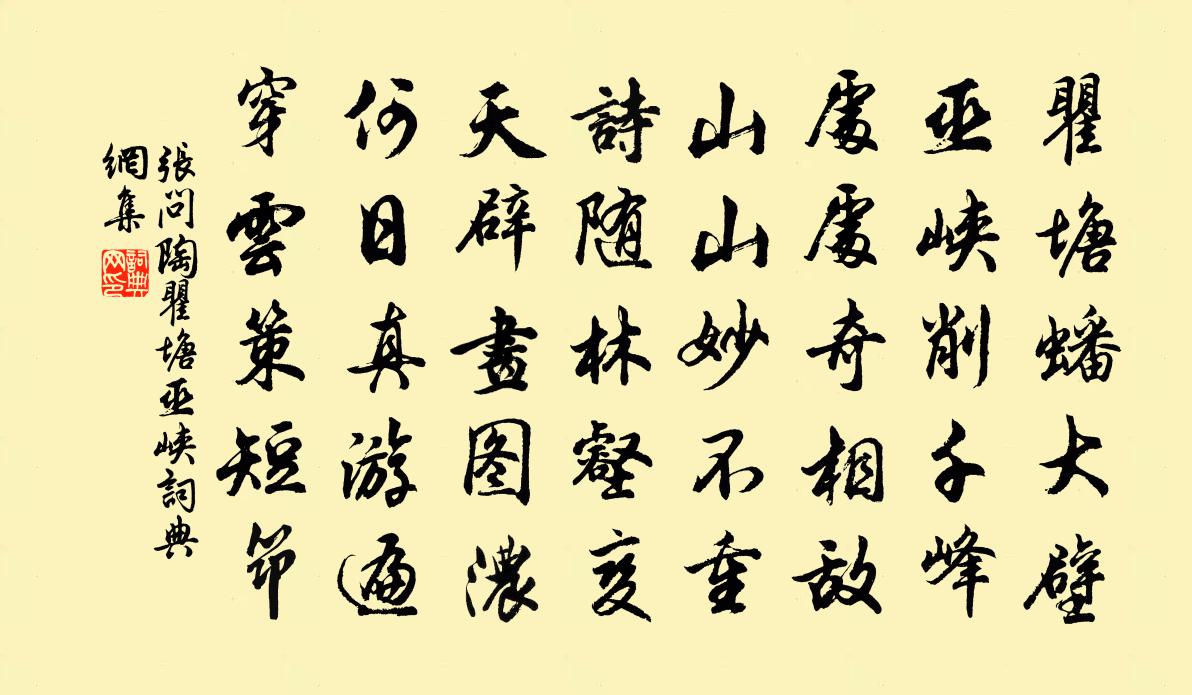 瞿塘蟠大壁
巫峡削千峰
處處奇相敌
山山妙不重
詩随林壑变
天辟畫图濃
何日真游遍
穿雲策短笻
張問陶瞿塘巫峡詞典
網集
詞典
网印